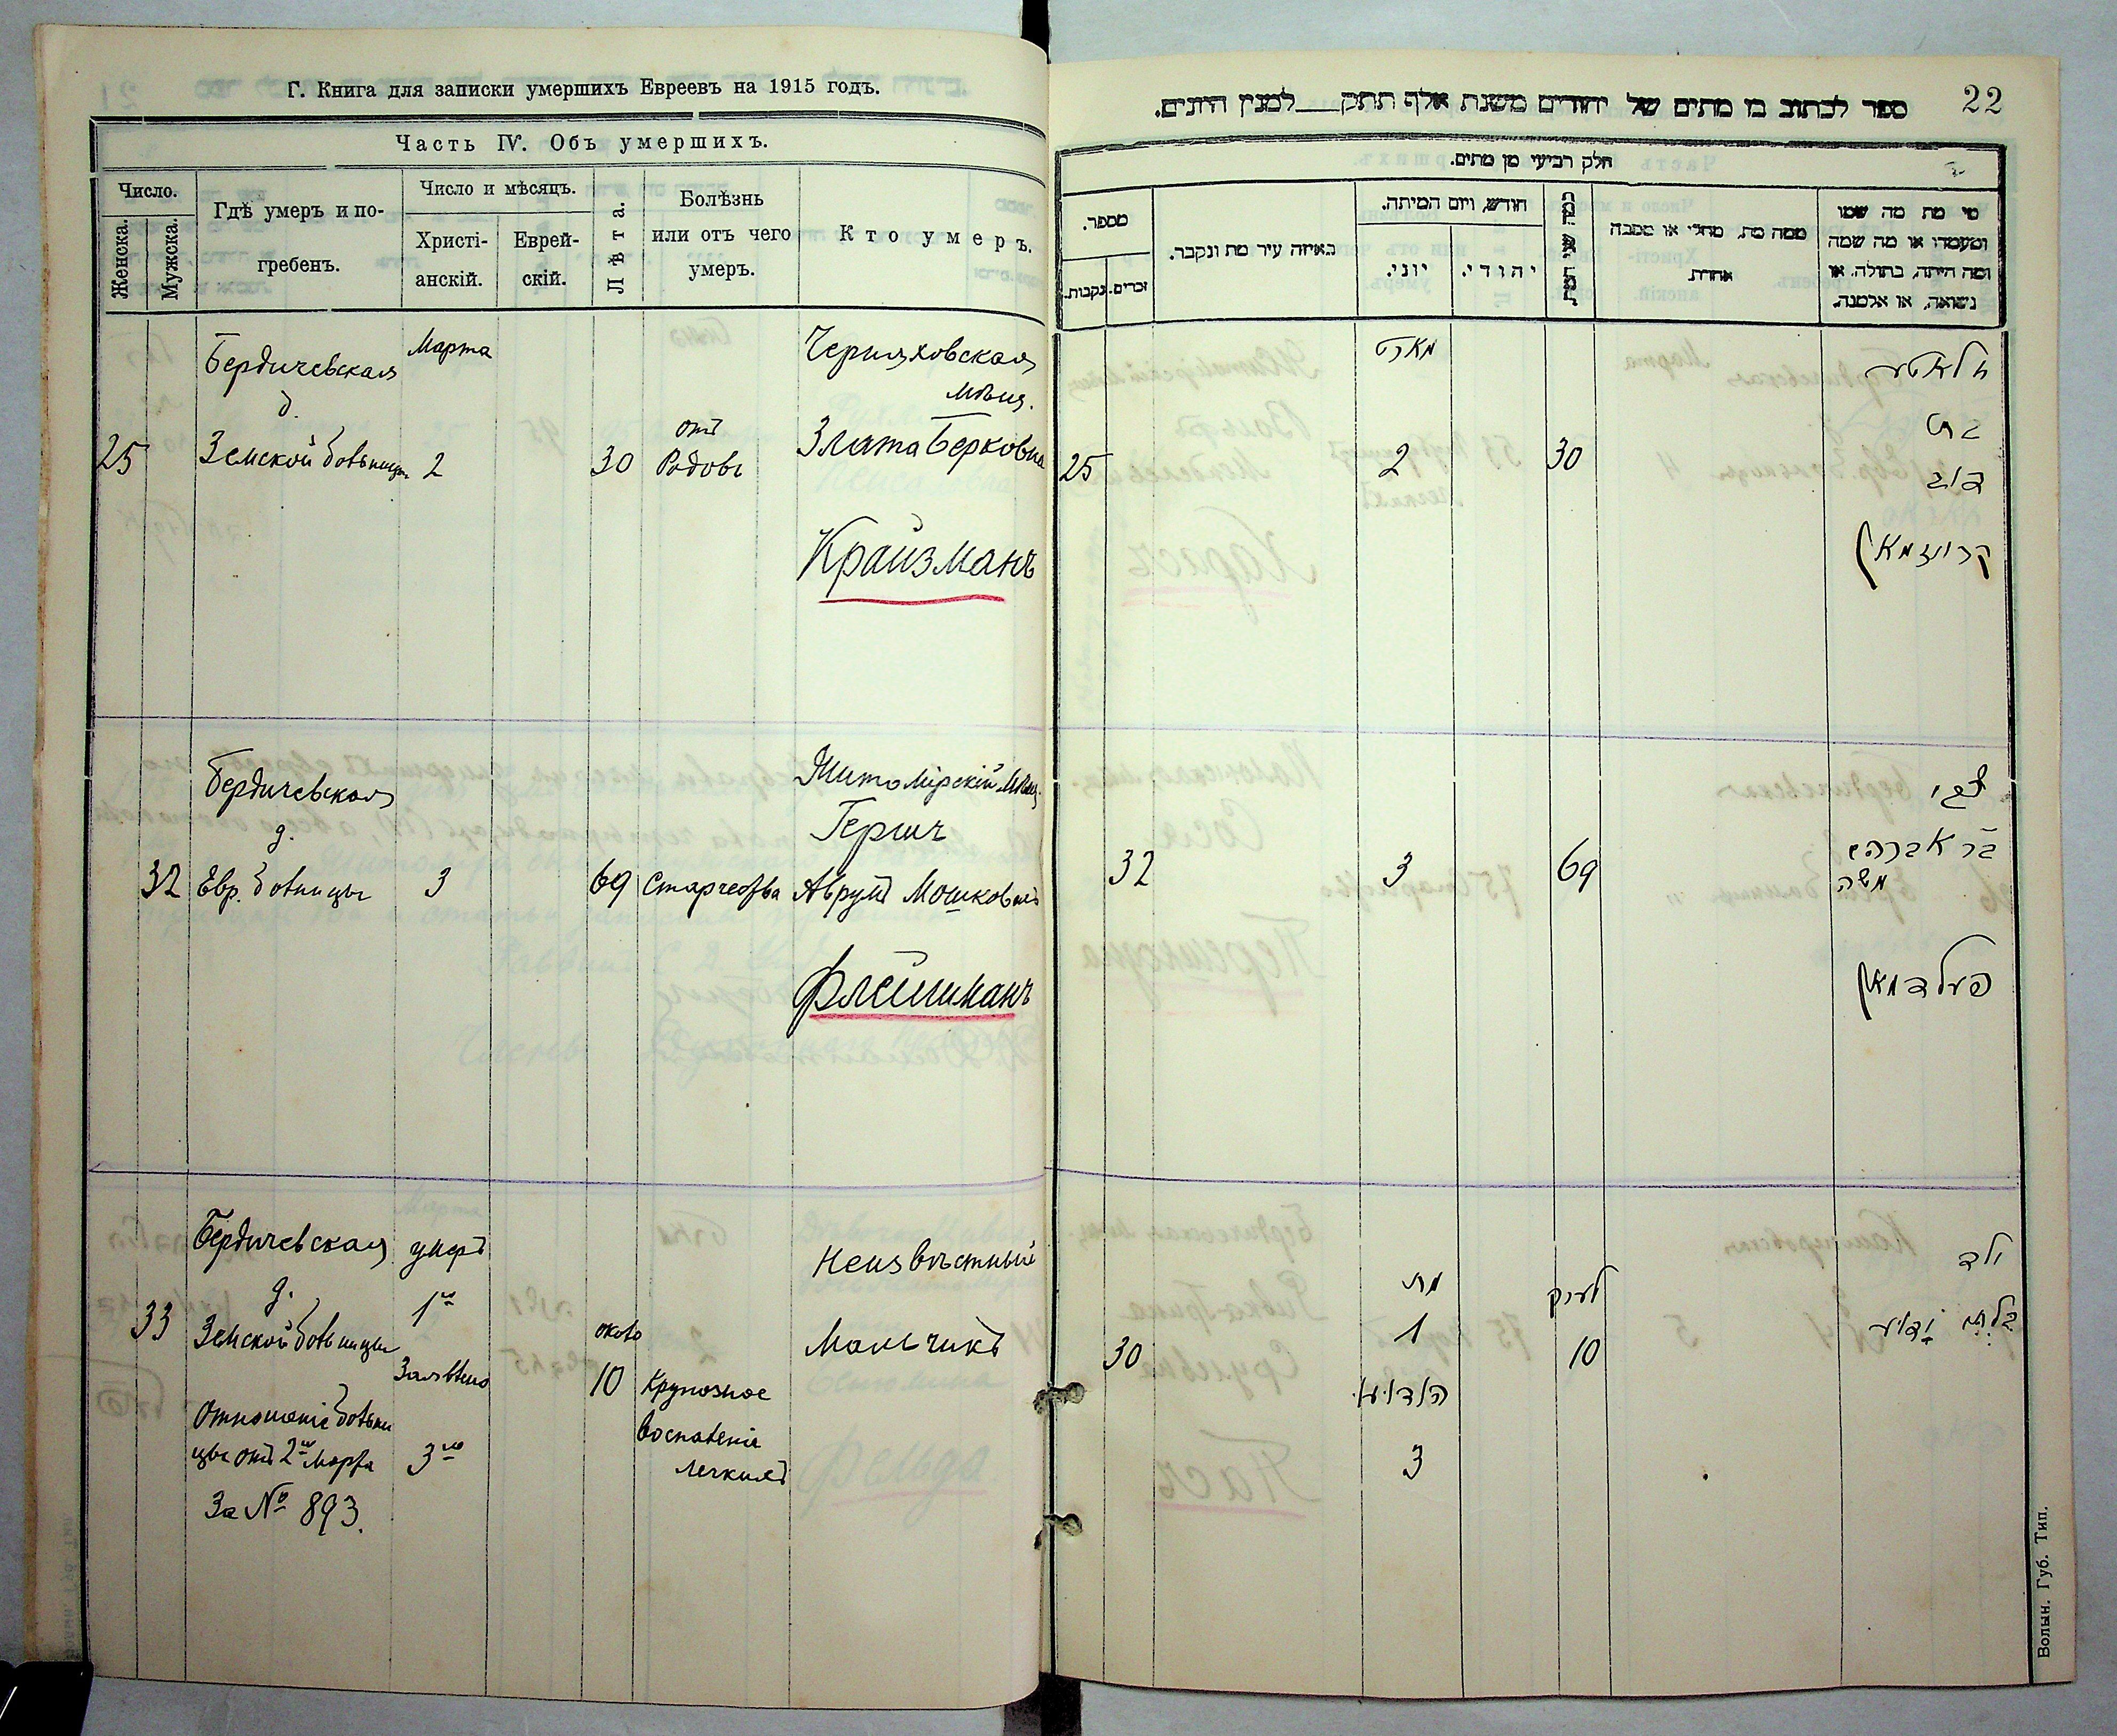 Г. Книга для записки умершихъ Евреевъ на 1915 годъ.
Часть IV. Объ умершихъ.
Число.
Женска.
Мужска.
Гдѣ умеръ и по-
гребенъ.
Число и мѣсяцъ.
Христі-
анскій.
Еврей-
скій.
Лѣта.
Болѣзнь
или отъ чего
умеръ.
Кто умеръ.
25
Бердичевская
д.
Земской больницы
Марта
2
30
отъ
Родовъ
Черняховская
мѣщ.
Злата Берковна
Крайзманъ
32
Бердичевская
д.
Евр. больницы
3
69
Старчества
Житомірскій мѣщ.
Гершъ
Аврумъ Мошковичъ
Флейшманъ
33
Бердичевская
д.
Земской больницы
Отношеніе больни
цы отъ 2го Марта
За № 893.
умеръ
1го
Заявлено
3го
около
10
Крупозное
воспаленіе
легкихъ
Неизвѣстный
Мальчикъ
22
ספר לכתוב בו מתים של יהודים משנת אלף תתק למנין היונים.
חלק רביעי מן מתים.
מספר.
נקבות.
זכרים.
באיזה עיר מת ונקבר.
חודש, ויום המיתה.
יוני.
יהודי.
ממה מת, מחלי או מסבה
אחרת
מי מת מה שמו
ומעמדו או מה שמה
ומה היתה, בתולה, או
נשואה, או אלמנה.
25
מארט
2
30
זלאטע
בת
דוב
קרויזמאן
32
3
69
צבי
בר אברהם
משה
פעלדמאן
30
מת
1
הודיעו
3
לערך
10
ילד
בלתי ידוע
Волын. Губ. Тип.